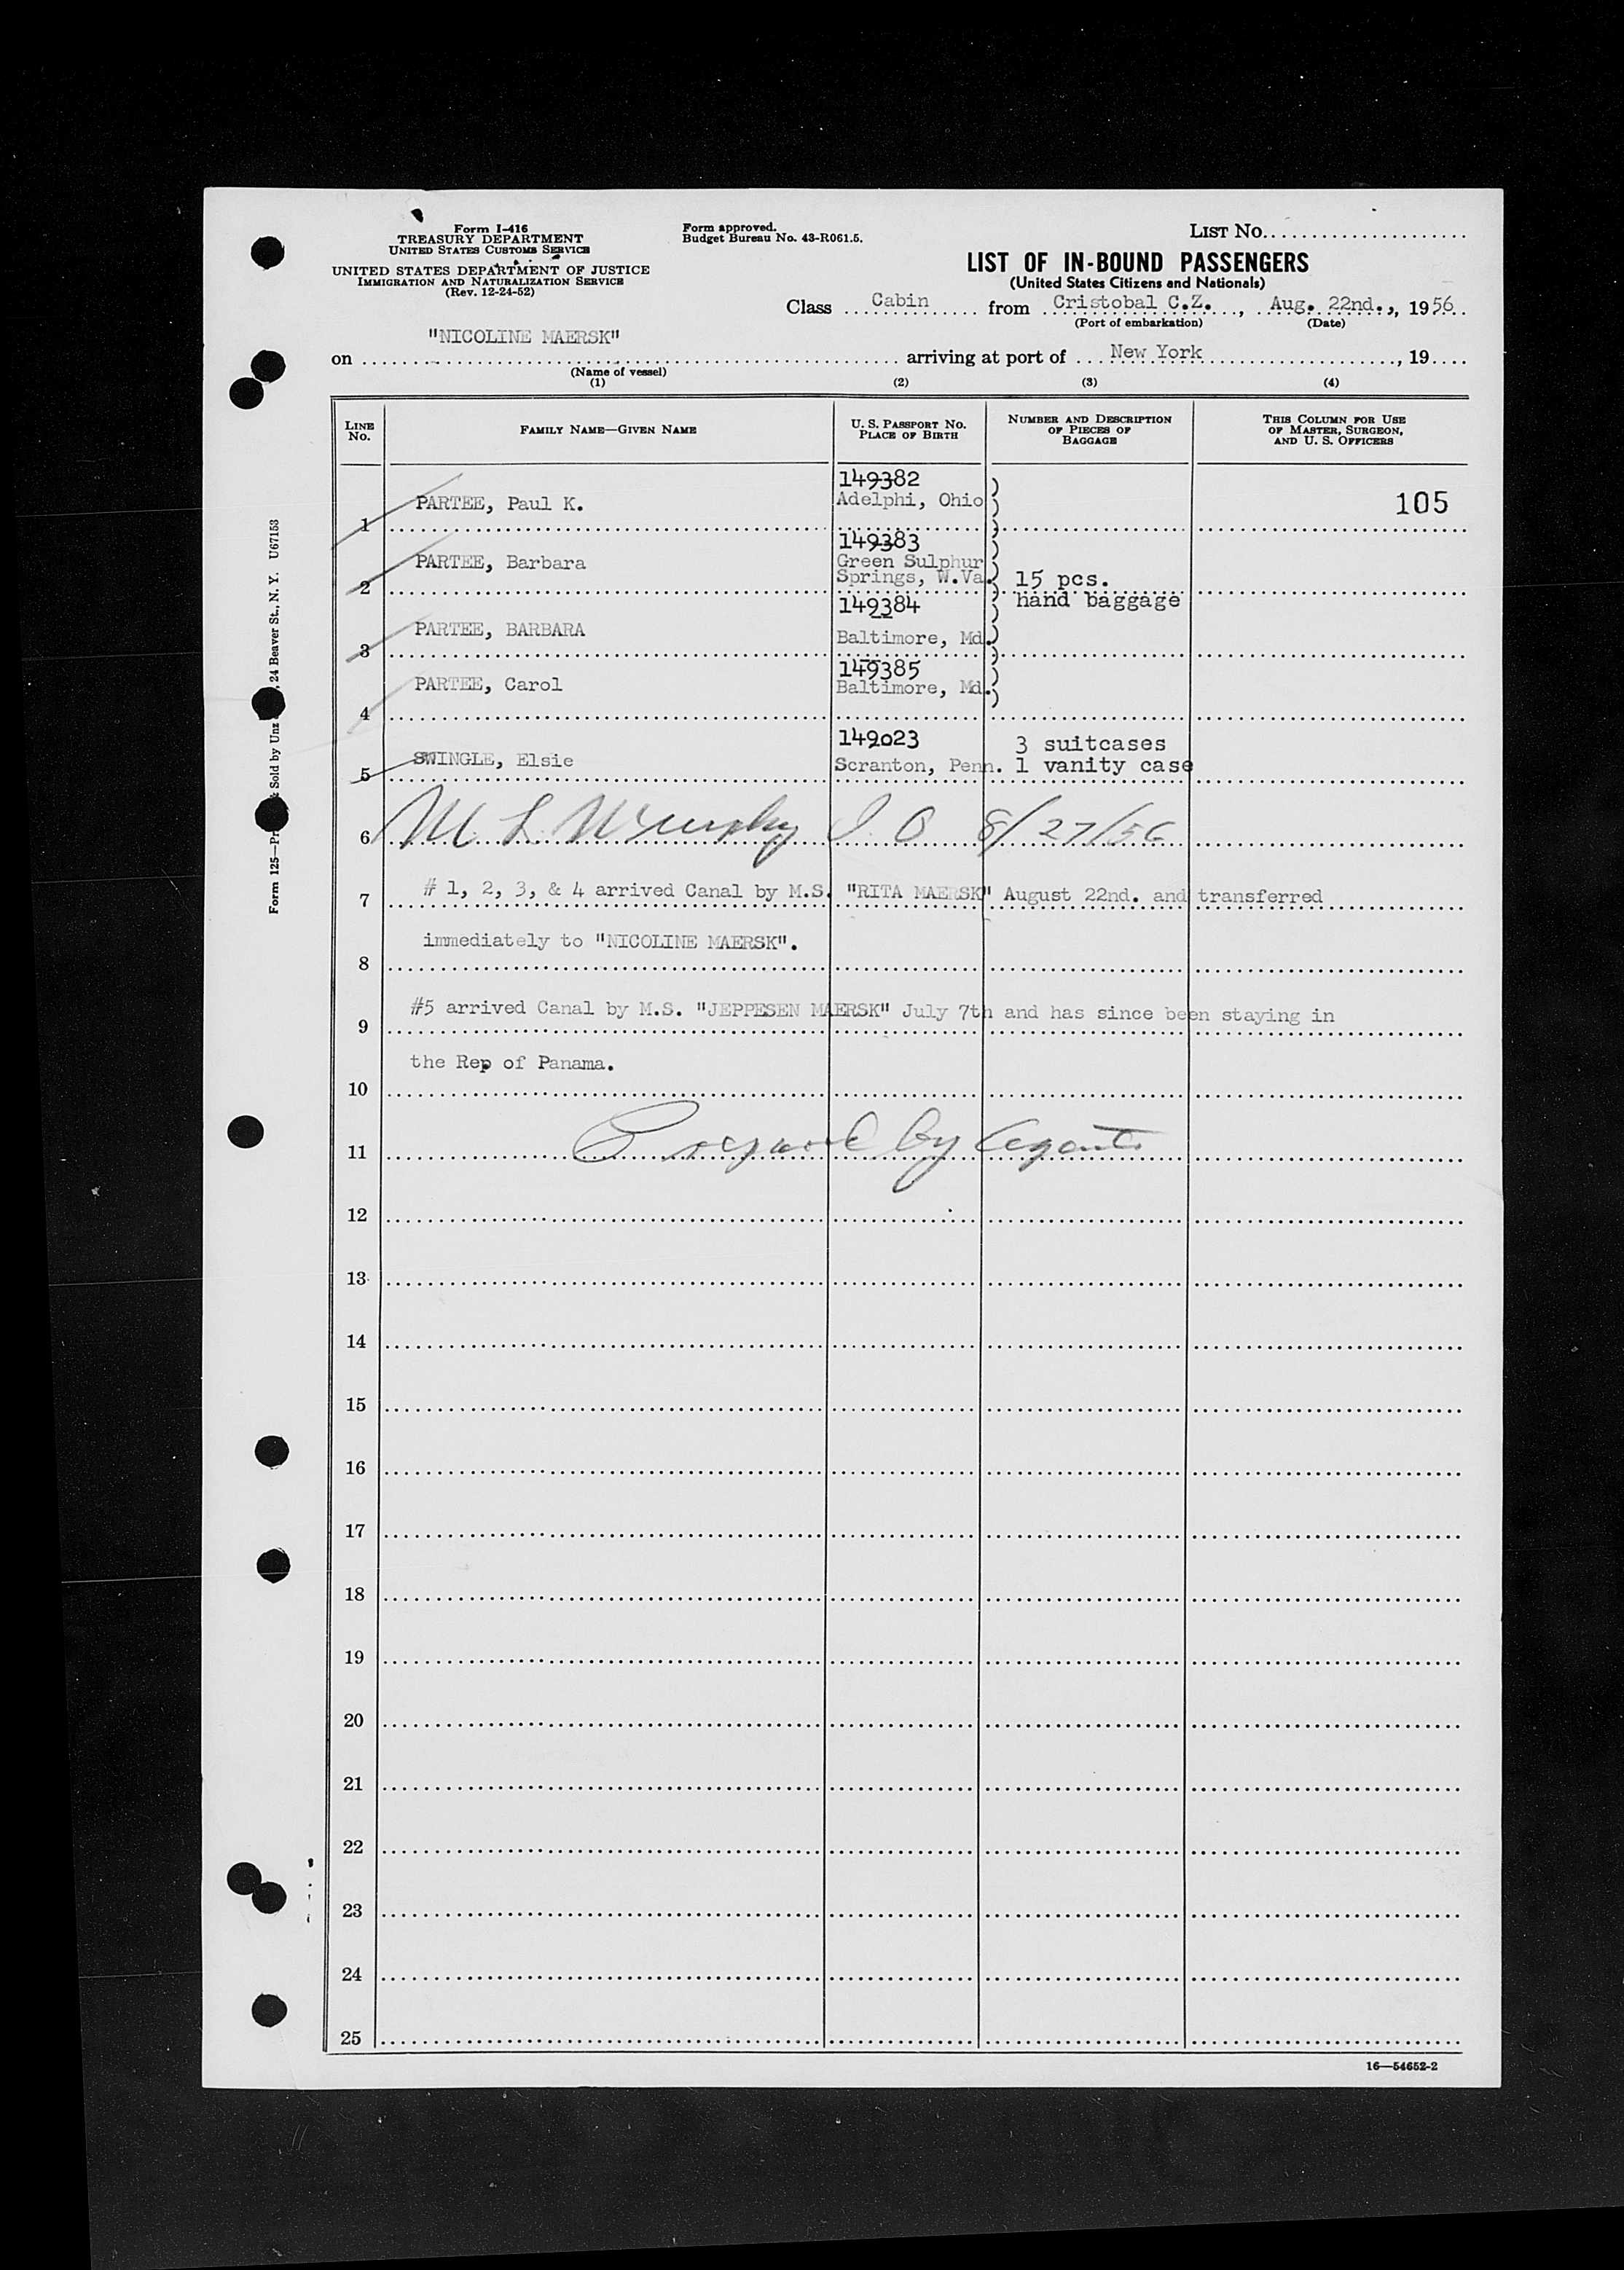 Form I-416
TREASURY DEPARTMENT
UNITED STATES CUSTOMS SERVICE
UNITED STATES DEPARTMENT OF JUSTICE
IMMIGRATION AND NATURALIZATION SERVICE
(Rev. 12-24-52)
Form approved.
Budget Bureau No. 43-R061.5.
LIST No.
LIST OF IN-BOUND PASSENGERS
(United States Citizens and Nationals)
Class Cabin from Cristobal C.Z., Aug. 22nd., 1956
(Port of embarkation) (Date)
on "NICOLINE MAERSK" arriving at port of New York, 19
(Name of vessel)
(1) (2) (3) (4)
LINE No. FAMILY NAME—GIVEN NAME U. S. PASSPORT No. PLACE OF BIRTH NUMBER AND DESCRIPTION OF PIECES OF BAGGAGE THIS COLUMN FOR USE OF MASTER, SURGEON, AND U. S. OFFICERS
149382
1 PARTEE, Paul K. Adelphi, Ohio 105
149383
2 PARTEE, Barbara Green Sulphur Springs, W.Va. 15 pcs. hand baggage
149384
3 PARTEE, BARBARA Baltimore, Md.
149385
4 PARTEE, Carol Baltimore, Md.
149023 3 suitcases
5 SWINGLE, Elsie Scranton, Penn. 1 vanity case
6 M L Murphy I O 8/27/56
7 # 1, 2, 3, & 4 arrived Canal by M.S. "RITA MAERSK" August 22nd. and transferred
8 immediately to "NICOLINE MAERSK".
9 #5 arrived Canal by M.S. "JEPPESEN MAERSK" July 7th and has since been staying in
10 the Rep of Panama.
11 Prepared by Agents
12
13
14
15
16
17
18
19
20
21
22
23
24
25
16—54652-2
Form 125—Pr & Sold by Unz , 24 Beaver St., N. Y. U67153